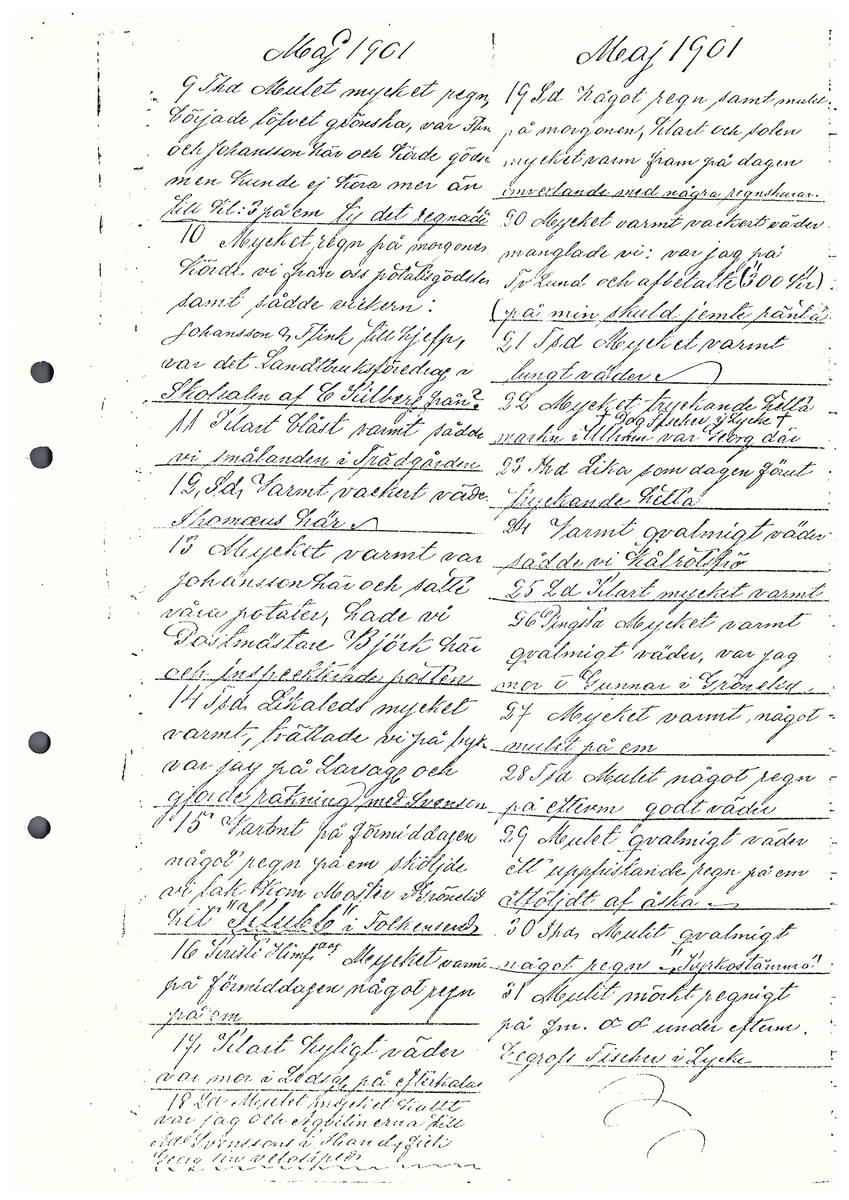 Maj 1901
9 Thd Mulet mycket regn,
började löfvet grönska, var
och Johansson här och körde göds
men kunde ej köra mer än
till Kl: 3 på em ty det regnade
10 Mycket regn på morgonen
Körde vi från oss potatisgödsen
samt sådde vickern:
Johansson & Flink till hjelp,
var det Landtbruksföredrag i
Skolsalen af C Kilberg från?
11 Klart blåst varmt sådde
vi smålanden i Trädgården
12, Sd, Varmt vackert väde
Thomæus här
13 Mycket varmt var
Johansson här och satte
våra potater, hade vi
Postmästare Björk här
och inspeckterade posten
14 Tsd, Likaleds mycket
varmt, tvättade vi på byk
var jag på Larsag och
gjorde räkning med Svenson
15 Varmt på förmiddagen
något regn på em sköljde
vi, kom Moster Grönelid
hit "Klubb" i Folkensend
16 Kristi Himf Mycket varmt
på förmiddagen något regn
på em
17, Klart kyligt väder
var mor i på efterkalas
18 Ld Mulet mycket kallt
var jag och Aqvilinerna till
Svenssons i fick
Georg sin velosiped
Maj 1901
19 Sd något regn samt mulet
på morgonen, klart och solen
mycket varm fram på dagen
omvexlande med några regnskurar.
20 Mycket varmt vackert väder
manglade vi: var jag på
Lund och afbetalte ("300 Kr")
(på min skuld jemte ränta
21 Tsd Mycket varmt
lungt väder
22 Mycket tryckande hetta
† Dog Fischer i Lycke †
marken i Ullervi var Georg där
23 Thd Lika som dagen förut
tryckande hetta
24 Varmt qvalmigt väder
sådde vi Kålrotsfrö
25 Ld Klart mycket varmt
26 Pingstd Mycket varmt
qvalmigt väder, var jag
mor o Gunnar i Grönelid,
27 Mycket varmt, något
mulet på em
28 Tsd Mulet något regn
på efterm godt väder
29 Mulet qvalmigt väder
ett uppfriskande regn på em
åtföljdt af åska
30 Thd, Mulit qvalmigt
något regn "Kyrkostämma"
31 Mulit mörkt regnigt
på fm. o o under efterm.
Begrofs Fischer i Lycke